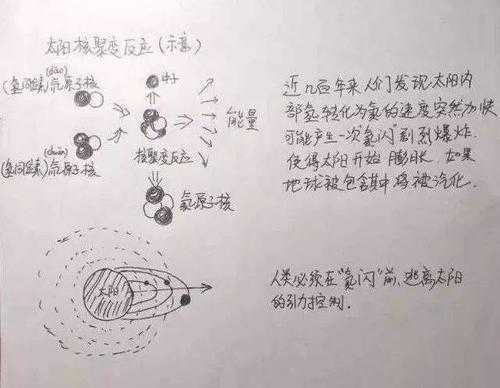 太阳核聚变反应(示意)
(dāo)
(氢同位素)氘原子核
中子
能量
核聚变反应
(chuān)
(氢同位素)氚原子核
氦原子核
近几百年来人们发现太阳内
部氢转化为氦的速度突然加快
可能产生一次"氦闪"剧烈爆炸.
使得太阳开始膨胀. 如果
地球被包含其中将被汽化.
太阳
人类必须在"氦闪"前,逃离太阳
的引力控制.